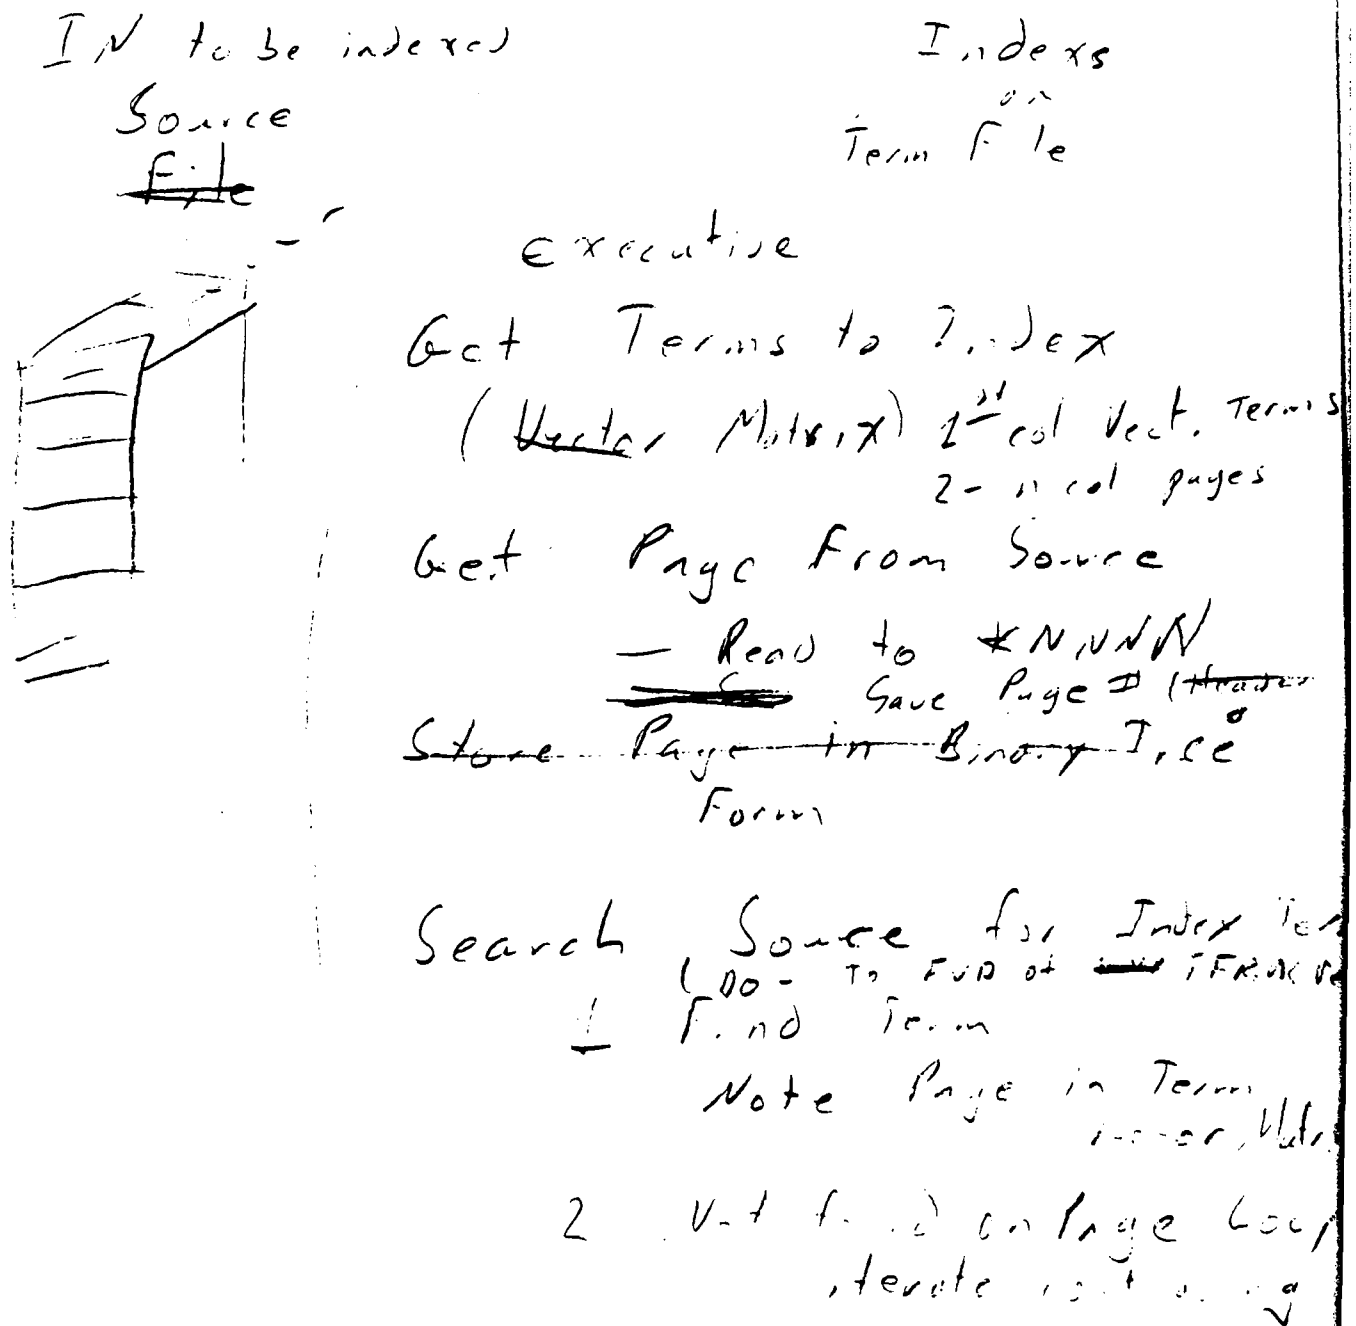 IN to be indexed
Indexs
on
Source
Term File
File
Executive
Get Terms to Index
(Vector Matrix) 1st col Vect. Terms
2 - n col pages
Get Page From Source
— Read to *NNNN
Save Page # (Header
Store Page in Binary Tree
Form
Search Source for Index
(DO - To END of
1 Find Term
Note Page in Term
2 Not found on Page Loop
iterate